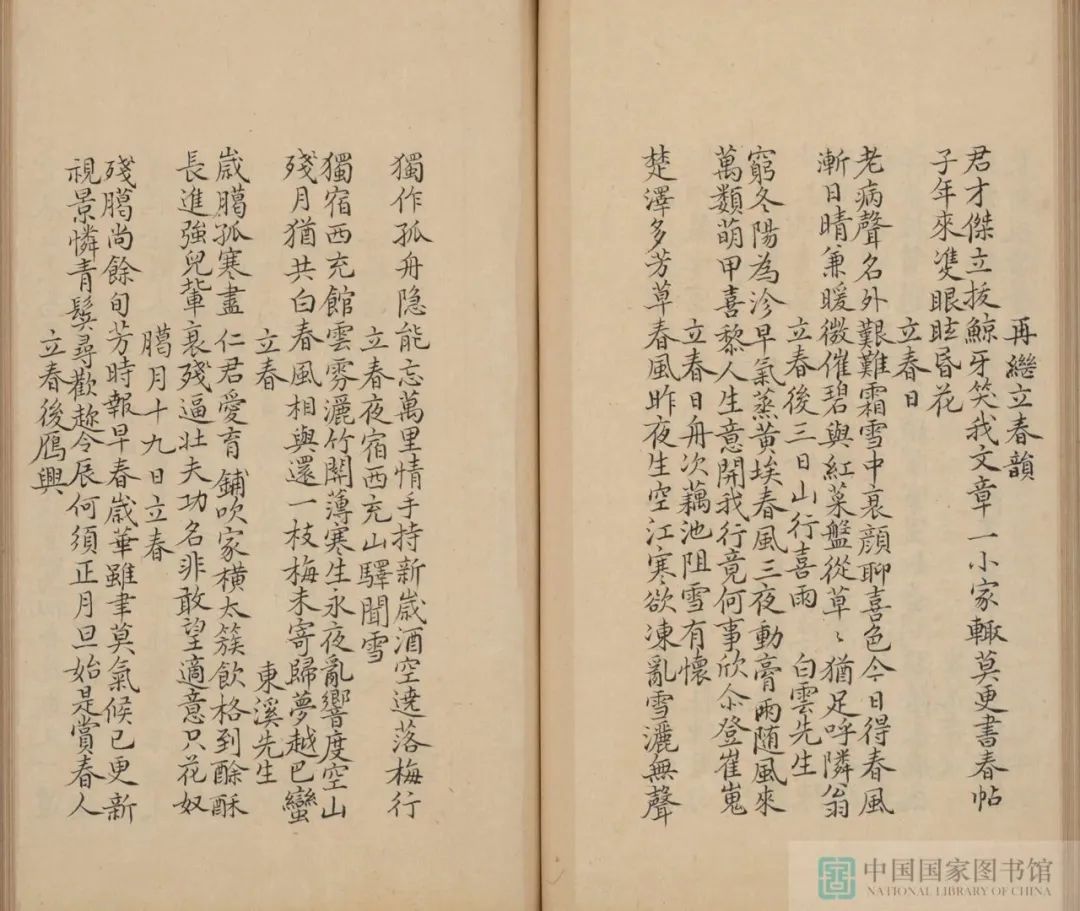 再繼立春韻
君才傑立拔鯨牙笑我文章一小家輙莫更書春帖
子年來隻眼眩昏花
立春日
老病聲名外艱難霜雪中衰顔聊喜色今日得春風
漸日晴兼暖微催碧與紅菜盤從草〻猶足呼隣翁
立春後三日山行喜雨 白雲先生
窮冬陽為沴早氣蒸黄埃春風三夜動膏雨随風來
萬類萌甲喜黎人生意開我行竟何事欣尒登崔嵬
立春日舟次藕池阻雪有懷
楚澤多芳草春風昨夜生空江寒欲凍亂雪灑無聲
獨作孤舟隐能忘萬里情手持新歲酒空遶落梅行
立春夜宿西充山驛聞雪
獨宿西充館雲雰灑竹關薄寒生永夜亂響度空山
殘月猶共白春風相與還一枝梅未寄歸夢越巴蠻
立春 東溪先生
歲臈孤寒盡 仁君愛育 鋪吹家横太簇飲格到酴酥
長進強兒輩衰殘逼壯夫功名非敢望適意只花奴
臈月十九日立春
殘臈尚餘旬芳時報早春歲華雖聿莫氣候已更新
視景憐青鬓尋歡趂令辰何須正月旦始是賞春人
立春後鴈興
中国国家图书馆
NATIONAL LIBRARY OF CHINA